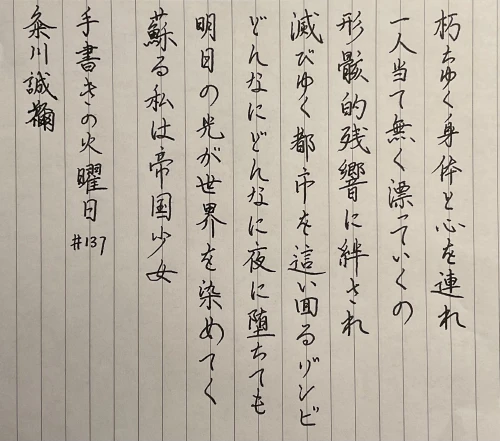 朽ちゆく身体と心を連れ
一人当て無く漂っていくの
形骸的残響に絆され
滅びゆく都市を這い回るゾンビ
どんなにどんなに夜に堕ちても
明日の光が世界を染めてく
蘇る私は帝国少女
手書きの火曜日 #137
粂川誠鞠